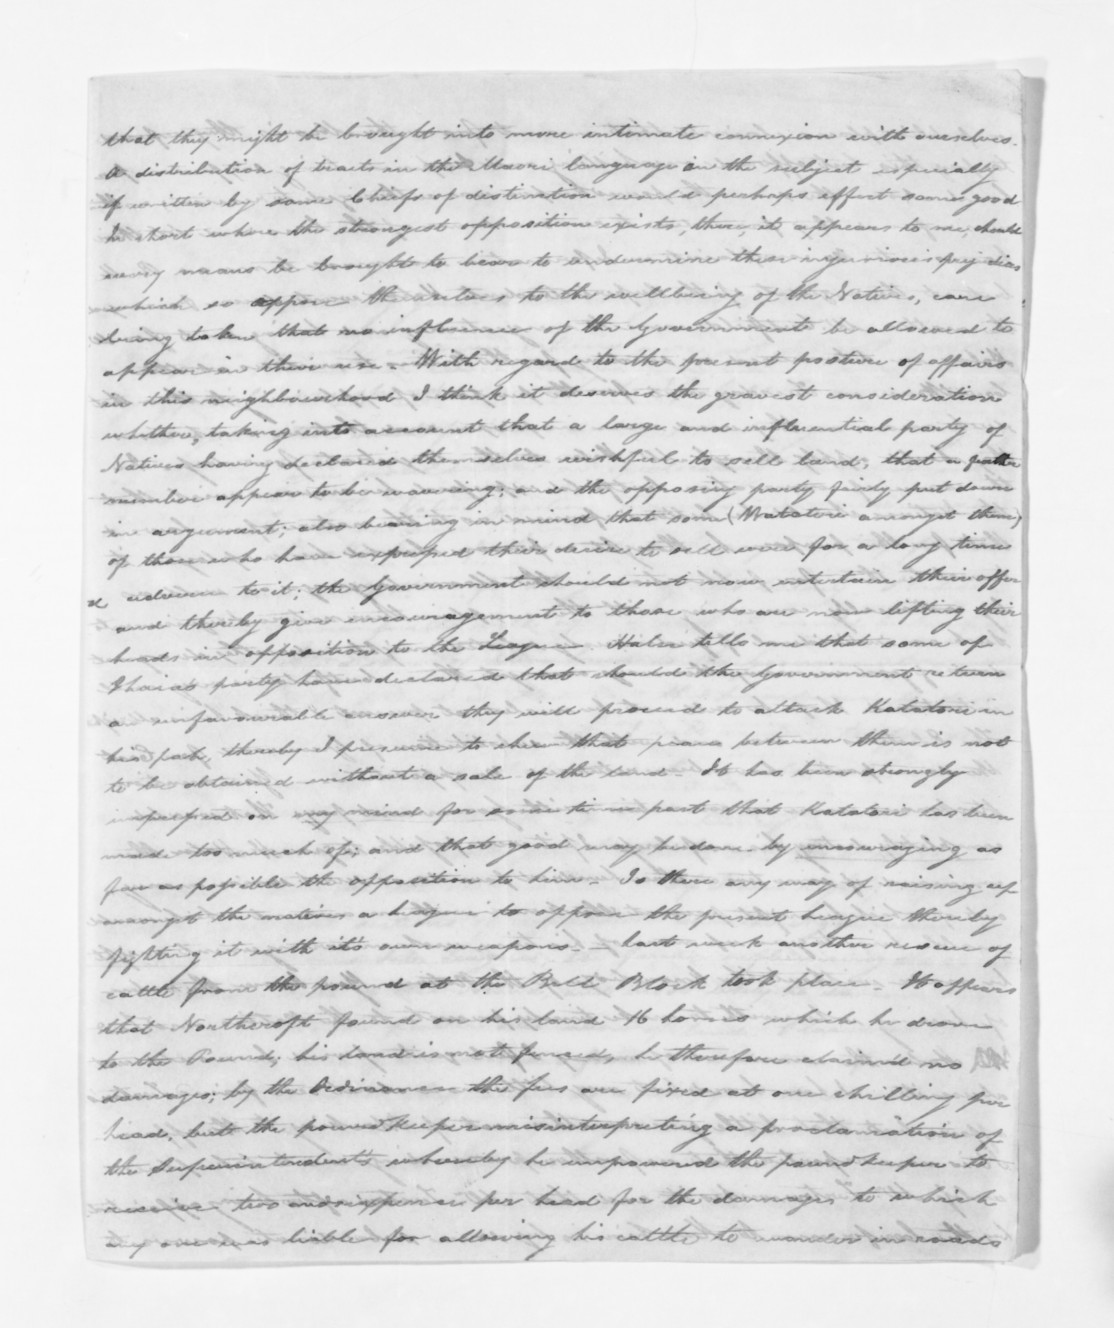 that they might be brought into more intimate connexion with ourselves.
A distribution of tracts in the Maori language on the subject especially
if written by some Chiefs of distinction would perhaps effect some good
In short where the strongest opposition exists, there, it appears to me, should
every means be brought to bear to undermine these injurious prejudices
which so oppose the to the wellbeing of the Natives, care
being taken that no influence of the Government be allowed to
appear in their use. With regard to the present posture of affairs
in this neighbourhood I think it deserves the gravest consideration
whether, taking into account that a large and influential party of
Natives having declared themselves wishful to sell land, that a greater
number appear to be wavering; and the opposing party fairly put down
in argument; also bearing in mind that some (Katatori amongst them)
of those who have expressed their desire to sell were for a long time
adverse to it; the Government should not now entertain their offer
and thereby give encouragement to those who are now lifting their
heads in opposition to the League. Halse tells me that some of
Ihaia's party have declared that should the Government return
a unfavourable answer they will proceed to attack Katatori in
his pah, thereby I presume to shew that peace between them is not
to be obtained without a sale of the land. It has been strongly
impressed on my mind for some time past that Katatori has been
made too much of; and that good may be done by encouraging as
far as possible the opposition to him. Is there any way of raising up
amongst the natives a league to oppose the present League thereby
fighting it with it's own weapons. Last week another rescue of
cattle from the pound at the Bell Block took place. It appears
that Northcroft found on his land 16 horses which he drove
to the Pound; his land is not fenced, he therefore claimed no
damages; by the Ordinance the fees are fixed at one shilling per
head, but the poundkeeper misinterpreting a proclamation of
the Superintendent's whereby he empowered the poundkeeper to
receive two and sixpence per head for the damages to which
any one was liable for allowing his cattle to wander in roads